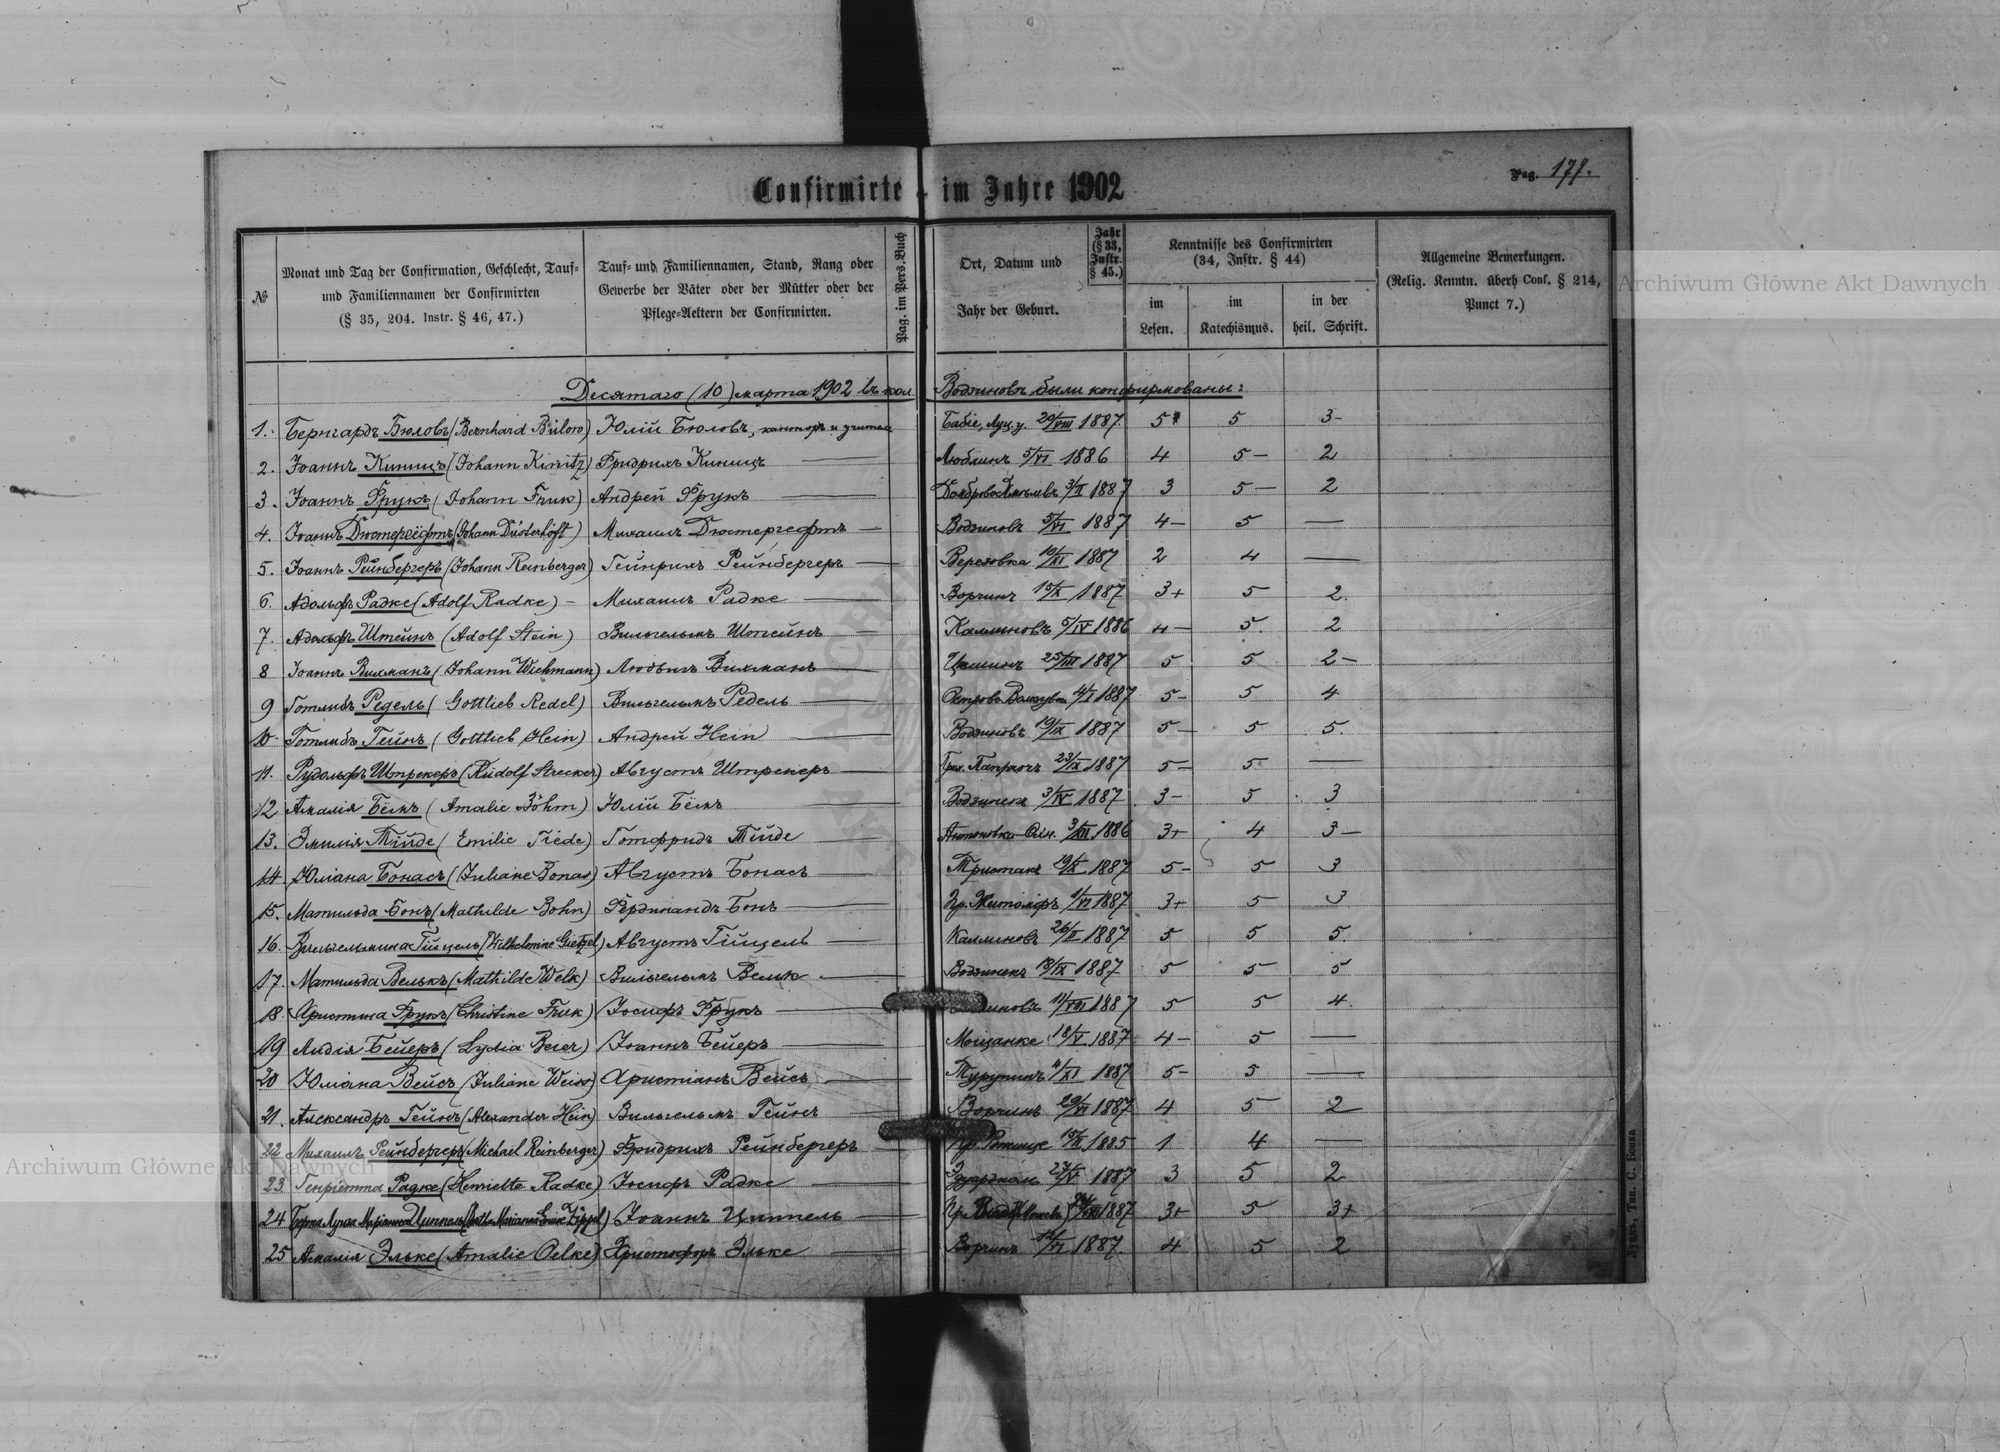 Confirmirte im Jahre 1902
Pag. 177.
№
Monat und Tag der Confirmation, Geschlecht, Tauf-
und Familiennamen der Confirmirten
(§ 35, 204. Instr. § 46, 47.)
Tauf- und Familiennamen, Stand, Rang oder
Gewerbe der Väter oder der Mütter oder der
Pflege-Aeltern der Confirmirten.
Pag. im Pers.Buch
Ort, Datum und
Jahr der Geburt.
Jahr
(§ 33,
Instr.
§ 45.)
Kenntnisse des Confirmirten
(34, Instr. § 44)
im
Lesen.
im
Katechismus.
in der
heil. Schrift.
Allgemeine Bemerkungen.
(Relig. Kenntn. überh Conf. § 214,
Punct 7.)
Десятаго (10) марта 1902 въ кол Водзиновъ были конфирмованы:
1. Бернгардъ Бюловъ (Bernhard Bülow) Юлій Бюловъ, канторъ и учитель Бабіе, Луц. у. 29/VIII 1887 5 5 3-
2. Іоаннъ Киницъ (Johann Kinitz) Фридрихъ Киницъ — Люблинъ 5/VI 1886 4 5- 2
3. Іоаннъ Фрукъ (Johann Fruk) Андрей Фрукъ — 1887 3 5- 2
4. Іоаннъ Дюстергефтъ (Johann Düsterhöft) Михаилъ Дюстергефтъ — Водзиновъ 5/VI 1887 4- 5 —
5. Іоаннъ Рейнбергеръ (Johann Reinberger) Гейнрихъ Рейнбергеръ — Березовка 10/XI 1887 2 4 —
6. Адольфъ Радке (Adolf Radke) - Михаилъ Радке — Ворчинъ 15/X 1887 3+ 5 2.
7. Адольфъ Штейнъ (Adolf Stein) Вильгельмъ Штейнъ — Калиновъ 5/IV 1886 4- 5. 2
8 Іоаннъ Вихманъ (Johann Wichmann) Людвигъ Вихманъ — 25/III 1887 5 5 2-
9 Готлибъ Редель (Gottlieb Redel) Вильгельмъ Редель — 4/I 1887 5- 5 4
10 Готлибъ Гейнъ (Gottlieb Hein) Андрей Hein — Водзиновъ 19/IX 1887 5- 5 5.
11. Рудольфъ Штрекеръ (Rudolf Strecker) Августъ Штрекеръ — 23/IX 1887 5- 5 —
12 Амалія Бёмъ (Amalie Böhm) Юлій Бёмъ — 3/IV 1887 3- 5 3
13. Эмилія Тиде (Emilie Tiede) Готфридъ Тиде — Антоновка 3/XII 1886 3+ 4 3-
14. Юліана Бонасъ (Juliane Bonas) Августъ Бонасъ — 19/X 1887 5- 5 3
15. Матильда Бонъ (Mathilde Bohn) Фердинандъ Бонъ — Гр. Житоміръ 1/VI 1887 3+ 5 3
16. Вильгельмина Гицель (Wilhelmine Gietzel) Августъ Гицель — Калиновъ 26/II 1887 5 5 5.
17. Матильда Велькъ (Mathilde Welk) Вильгельмъ Велкъ — 18/IX 1887 5 5 5
18. Христина Фрукъ (Christine Fruk) Іосифъ Фрукъ — 11/VIII 1887 5 5 4.
19 Лидія Бейеръ (Lydia Beier) Іоаннъ Бейеръ — Мощанке 18/V 1887 4- 5 —
20 Юліана Вейсъ (Juliane Weiss) Христіанъ Вейсъ — Турупинъ 4/XI 1887 5- 5 —
21. Александръ Гейнъ (Alexander Hein) Вильгельмъ Гейнъ — Ворчинъ 29/VI 1887 4 5 2
22 Михаилъ Рейнбергеръ (Michael Reinberger) Фридрихъ Рейнбергеръ — 15/X 1885 1 4 —
23. Генріетта Радке (Henriette Radke) Іосифъ Радке — 27/V 1887 3 5 2
24 Іоаннъ Циппель — 1887 3+ 5 3+
25 Амалія Эльке (Amalie Oelke) Христофоръ Эльке — Ворчинъ 14/VI 1887. 4 5 2
Луцкъ, Тип. С. Бонка
Archiwum Główne Akt Dawnych
Archiwum Główne Akt Dawnych